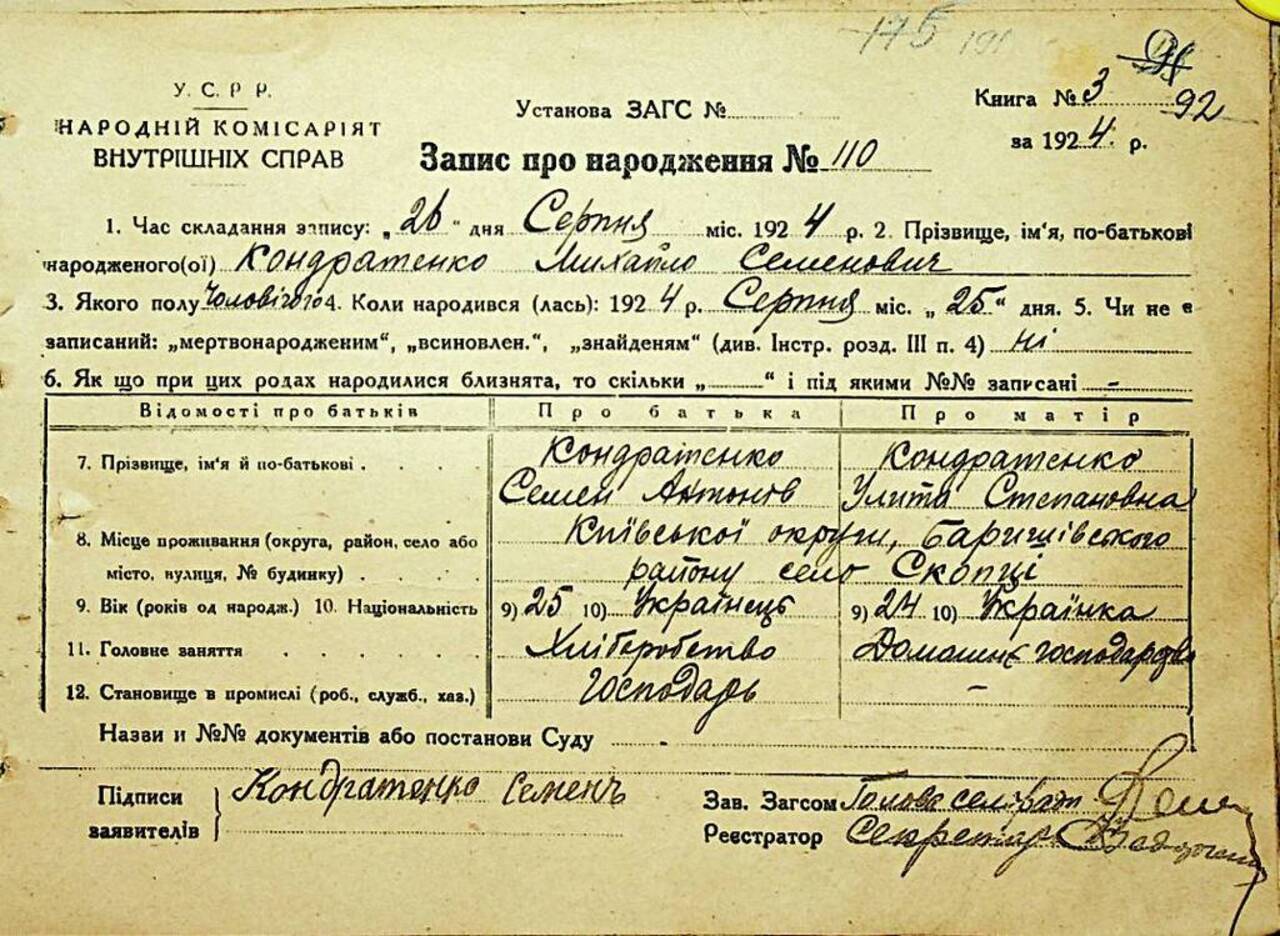 175 191
92
У. С. Р Р.
НАРОДНІЙ КОМІСАРІЯТ
ВНУТРІШНІХ СПРАВ
Установа ЗАГС №
Книга № 3
за 1924 р.
Запис про народження № 110
1. Час складання запису: „26“ дня Серпня міс. 1924 р. 2. Прізвище, ім'я, по-батькові
народженого(ої) Кондратенко Михайло Семенович
3. Якого полу Чоловічого 4. Коли народився (лась): 1924 р. Серпня міс. „25“ дня. 5. Чи не є
записаний: „мертвонародженим“, „всиновлен.“, „знайденям“ (див. Інстр. розд. III п. 4) ні
6. Як що при цих родах народилися близнята, то скільки „ “ і під якими №№ записані -
Відомості про батьків Про батька Про матір
7. Прізвище, ім'я й по-батькові . . . . Кондратенко Кондратенко
Семен Антонів Улита Степановна
8. Місце проживання (округа, район, село або Київської округи, Баришівського
місто, вулиця, № будинку) . . . . району село Скопці
9. Вік (років од народж.) 10. Національність 9) 25 10) Українець 9) 24 10) Українка
11. Головне заняття . . . . . . Хліборобство Домашнє господарство
12. Становище в промислі (роб., служб., хаз.) Господарь -
Назви и №№ документів або постанови Суду -
Підписи
заявителів
Кондратенко Семенъ
Зав. Загсом Голова сельради
Реєстратор Секретар